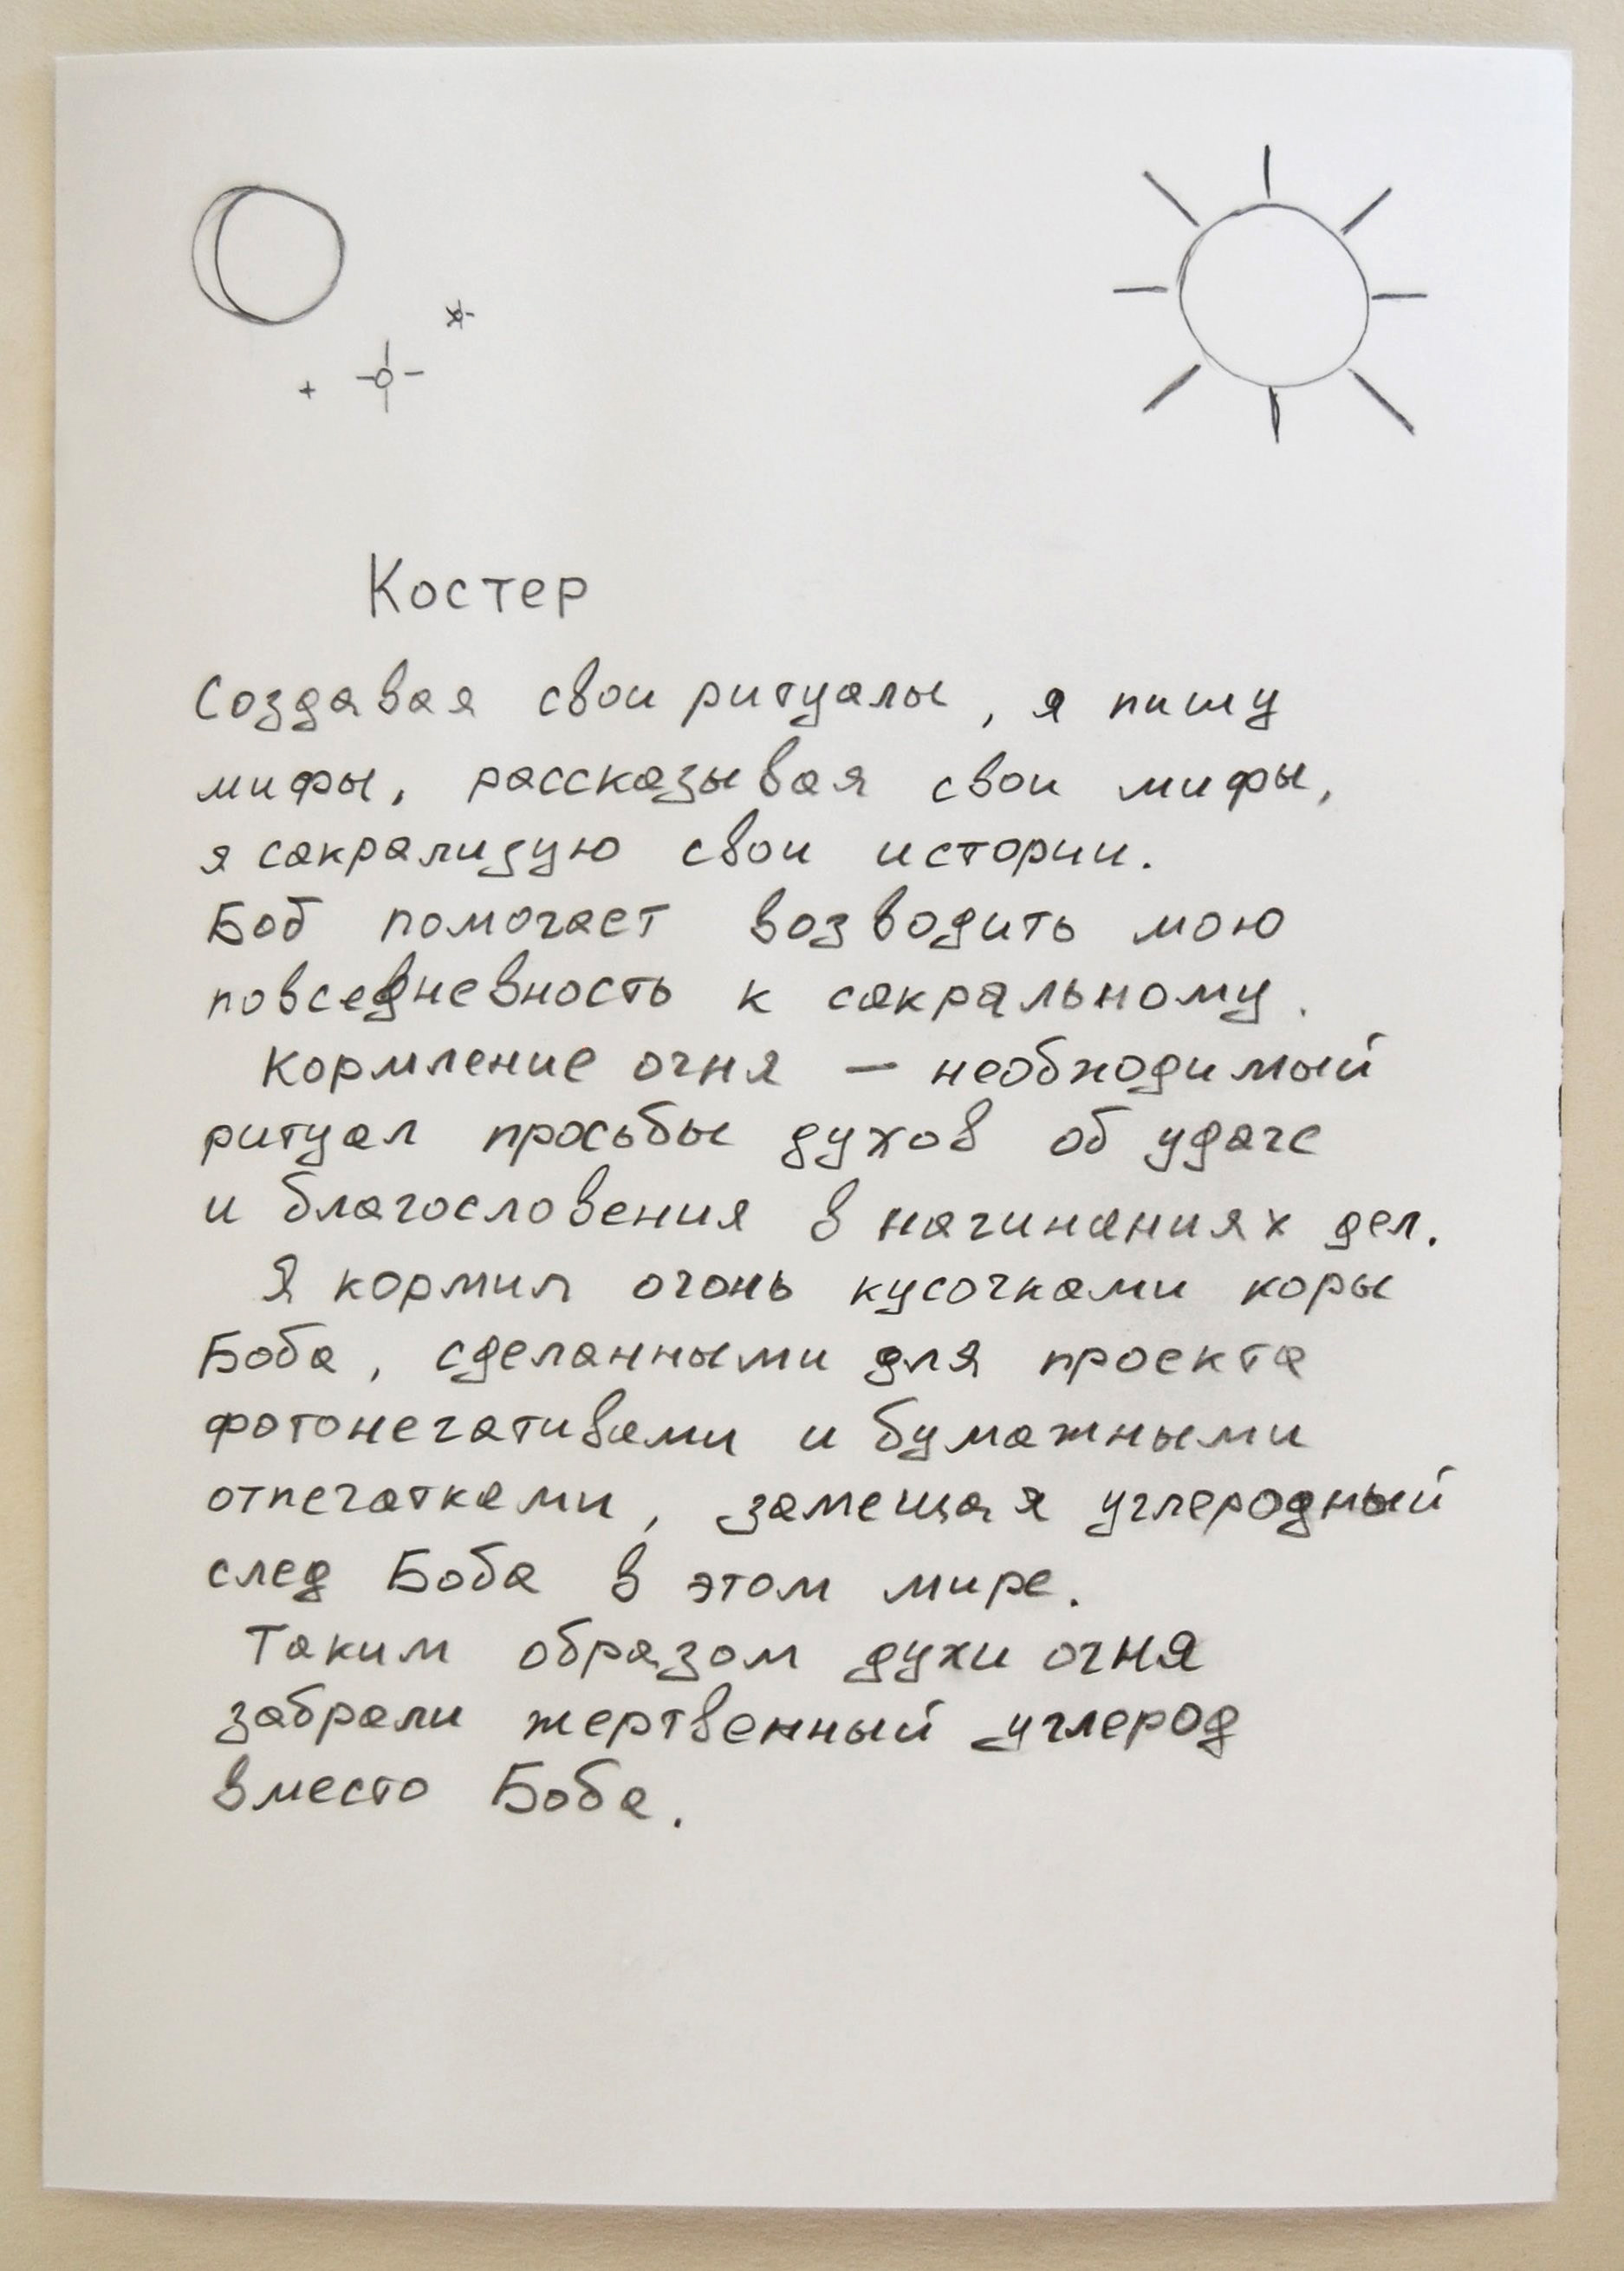 Костер
Создавая свои ритуалы, я пишу
мифы, рассказывая свои мифы,
я сакрализую свои истории.
Боб помогает возводить мою
повседневность к сакральному.
Кормление огня — необходимый
ритуал просьбы духов об удаче
и благословения в начинаниях дел.
Я кормил огонь кусочками коры
Боба, сделанными для проекта
фотонегативами и бумажными
отпечатками, замещая углеродный
след Боба в этом мире.
Таким образом духи огня
забрали жертвенный углерод
вместо Боба.